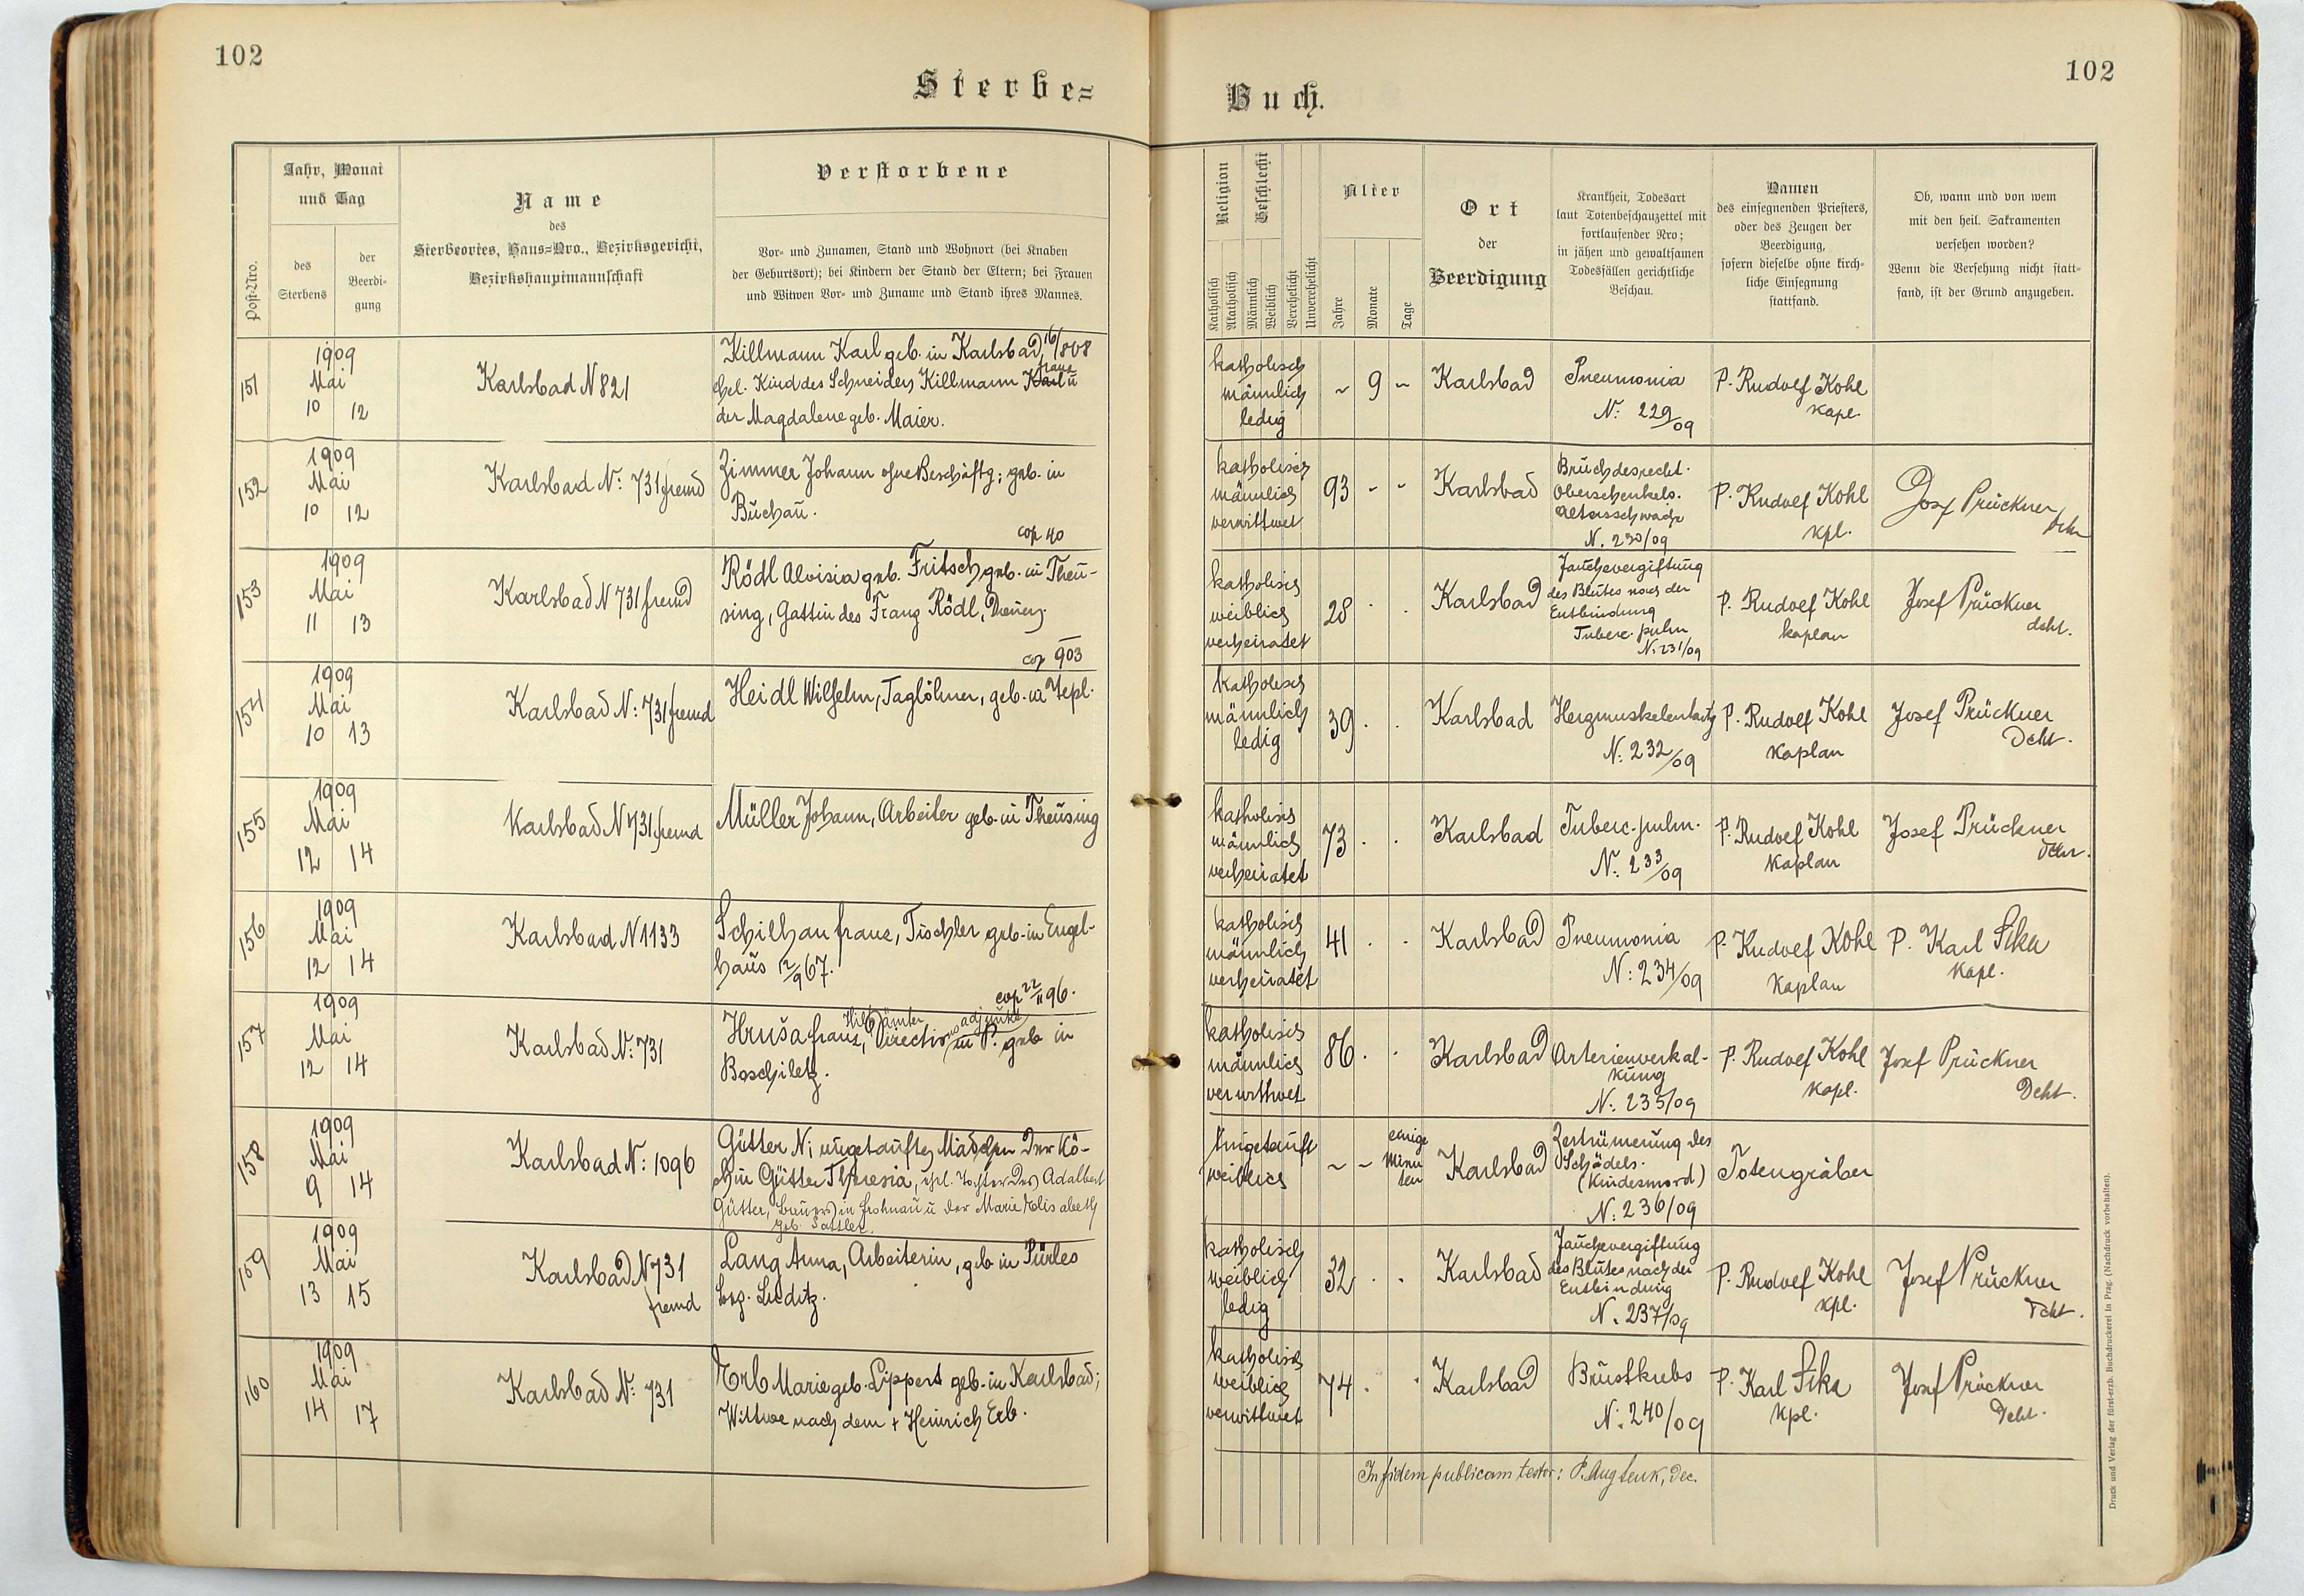 102
Sterbe=
Jahr, Monat
und Tag
Verstorbene
Name
des
Sterbeortes, Haus=Nro., Bezirksgericht,
Bezirkshauptmannschaft
Post=Nro.
des
Sterbens
der
Beerdi-
gung
Vor- und Zunamen, Stand und Wohnort (bei Knaben
der Geburtsort); bei Kindern der Stand der Eltern; bei Frauen
und Witwen Vor- und Zuname und Stand ihres Mannes.
151
1909
Mai
10 12
Karlsbad N 821
Killmann Karl geb. in Karlsbad, 16/808
ehel. Kind des Schneiders Killmann Karl Franz u
der Magdalene geb. Maier.
152
1909
Mai
10 12
Karlsbad No: 731 fremd
Zimmer Johann ohne Beschäftg; geb. in
Buchau.
cop 40
153
1909
Mai
11 13
Karlsbad N 731 fremd
Rödl Aloisia geb. Fritsch geb. in Theu-
sing, Gattin des Franz Rödl,
cop 903
154
1909
Mai
10 13
Karlsbad N: 731 fremd
Heidl Wilhelm, Taglöhner, geb. in Tepl.
155
1909
Mai
12 14
Karlsbad N 731 fremd
Müller Johann, Arbeiter geb. in Theusing
156
1909
Mai
12 14
Karlsbad N 1133
Schilhan Franz, Tischler geb. in Engel-
haus 12/9 67.
cop 22/11 96.
157
1909
Mai
12 14
Karlsbad No: 731
Hruša Franz, Hilfsämter Directions adjunkt in P. geb in
Boschiletz.
158
1909
Mai
9 14
Karlsbad N: 1096
Gütter N; ungetauftes Mädchen der Kö-
chin Gütter Theresia, ehel. Tochter des Adalbert
Gütter, Bauers in Frohnau u der Marie Elisabeth
geb. Sattler.
159
1909
Mai
13 15
Karlsbad N 731
fremd
Lang Anna, Arbeiterin, geb in Pürles
Bez. Luditz.
160
1909
Mai
14 17
Karlsbad No: 731
Erb Marie geb. Lippert geb. in Karlsbad;
Wittwe nach dem + Heinrich Erb.
102
Buch.
Religion
Geschlecht
Katholisch
Akatholisch
Männlich
Weiblich
Verehelicht
Unverehelicht
Alter
Jahre
Monate
Tage
Ort
der
Beerdigung
Krankheit, Todesart
laut Totenbeschauzettel mit
fortlaufender Nro;
in jähen und gewaltsamen
Todesfällen gerichtliche
Beschau.
Namen
des einsegnenden Priesters,
oder des Zeugen der
Beerdigung,
sofern dieselbe ohne kirch-
liche Einsegnung
stattfand.
Ob, wann und von wem
mit den heil. Sakramenten
versehen worden?
Wenn die Versehung nicht statt-
fand, ist der Grund anzugeben.
katholisch
männlich
ledig
~ 9 ~
Karlsbad
Pneumonia
N: 229/09
P. Rudolf Kohl
Kapl.
katholisch
männlich
verwittwet
93 - -
Karlsbad
Bruch des recht.
Oberschenkels.
Altersschwäche
N. 230/09
P. Rudolf Kohl
Kpl.
Josef Prückner
Dcht
katholisch
weiblich
verheiratet
28 . .
Karlsbad
Jauchevergiftung
des Blutes nach der
Entbindung
Tuberc. pulm
N: 231/09
P. Rudolf Kohl
Kaplan
Josef Prückner
dcht.
Katholisch
männlich
ledig
39 . .
Karlsbad
Herzmuskelentartg
N: 232/09
P. Rudolf Kohl
Kaplan
Josef Prückner
Dcht.
katholisch
männlich
verheiratet
73 . .
Karlsbad
Tuberc. pulm.
N: 233/09
P. Rudolf Kohl
Kaplan
Josef Prückner
Dcht.
katholisch
männlich
verheiratet
41 . .
Karlsbad
Pneumonia
N: 234/09
P. Rudolf Kohl
Kaplan
P. Karl Sika
Kapl.
katholisch
männlich
verwittwet
86 . .
Karlsbad
Arterienverkal-
kung
N: 235/09
P. Rudolf Kohl
Kapl.
Josef Prückner
Dcht.
Ungetauft
weiblich
~ ~ einige
Minu
ten
Karlsbad
Zertrümerung des
Schädels.
(Kindesmord)
N: 236/09
Totengräber
katholisch
weiblich
ledig
32 . .
Karlsbad
Jauchevergiftung
des Blutes nach der
Entbindung
N. 237/09
P. Rudolf Kohl
Kpl.
Josef Prückner
Dcht.
katholisch
weiblich
verwittwet
74 . .
Karlsbad
Brustkrebs
N: 240/09
P. Karl Sika
Kpl.
Josef Prückner
Dcht.
In fidem publicam testor: P. Aug Lenk, Dec.
Druck und Verlag der fürst-erzb. Buchdruckerei in Prag. (Nachdruck vorbehalten).